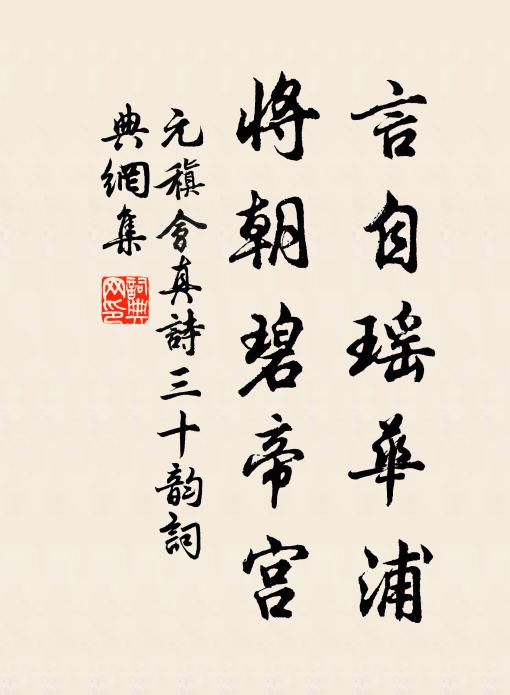 言自瑶華浦
將朝碧帝宮
元稹會真詩三十韵詞
典網集
詞典
网印